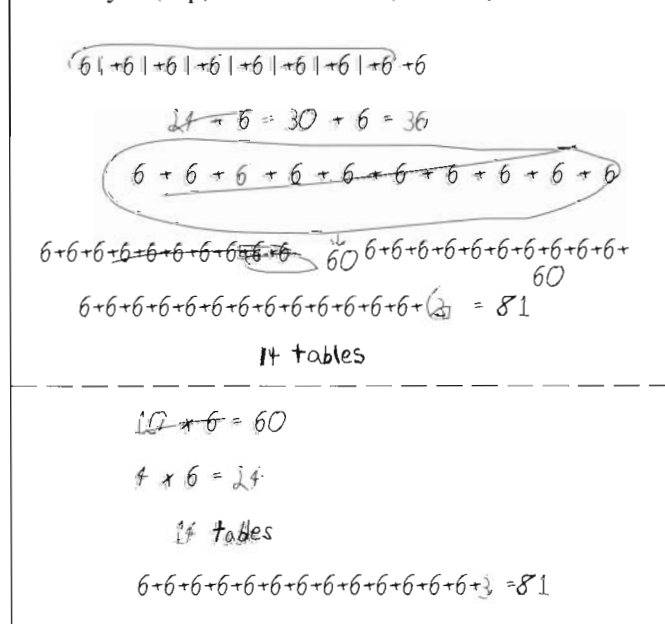 6|+6|+6|+6|+6|+6|+6|+6 +6
24 + 6 = 30 + 6 = 36
6 + 6 + 6 + 6 + 6 + 6 + 6 + 6 + 6 + 6
6+6+6+6+6+6+6+6+6+6 60 6+6+6+6+6+6+6+6+6+6+
60
6+6+6+6+6+6+6+6+6+6+6+6+6+3 = 81
14 tables
10 × 6 = 60
4 × 6 = 24
14 tables
6+6+6+6+6+6+6+6+6+6+6+6+6+3 =81